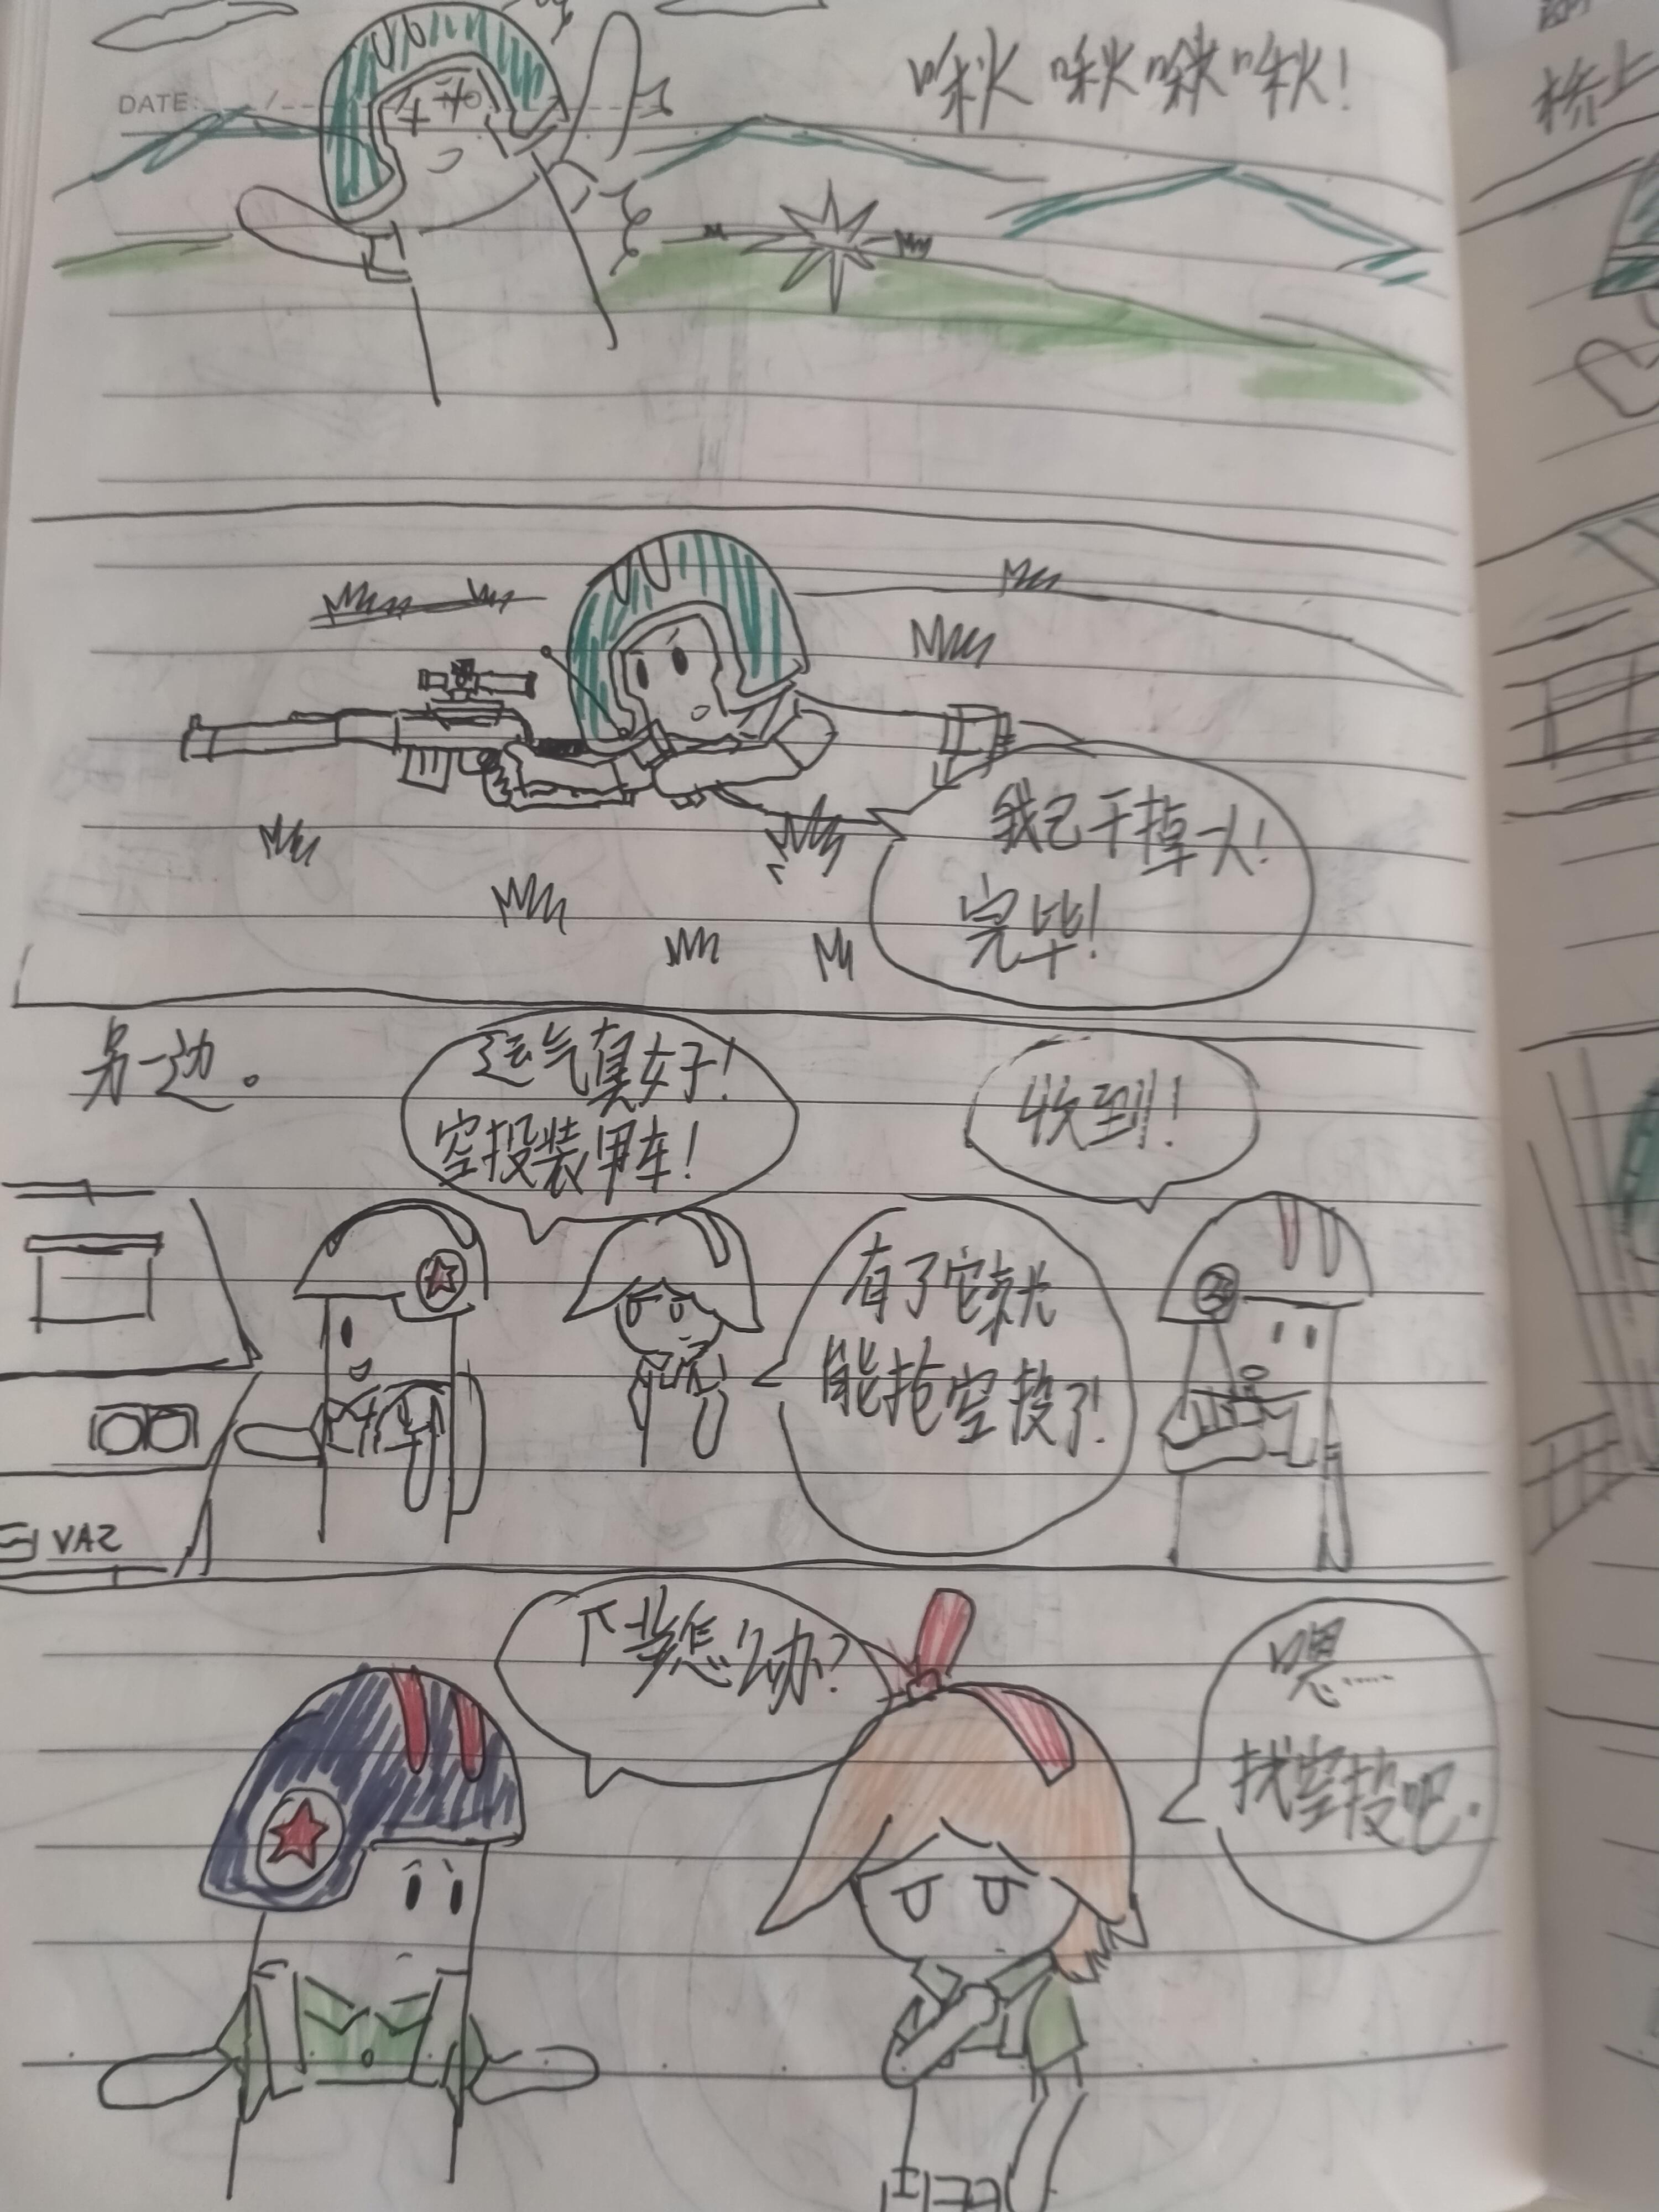 啾 啾 啾 啾！
DATE:
NO
我已干掉一人！
完毕！
另一边。
运气真好！
空投装甲车！
收到！
有了它就
能抢空投了！
VAZ
下步怎么办？
嗯……
找空投吧.
桥上